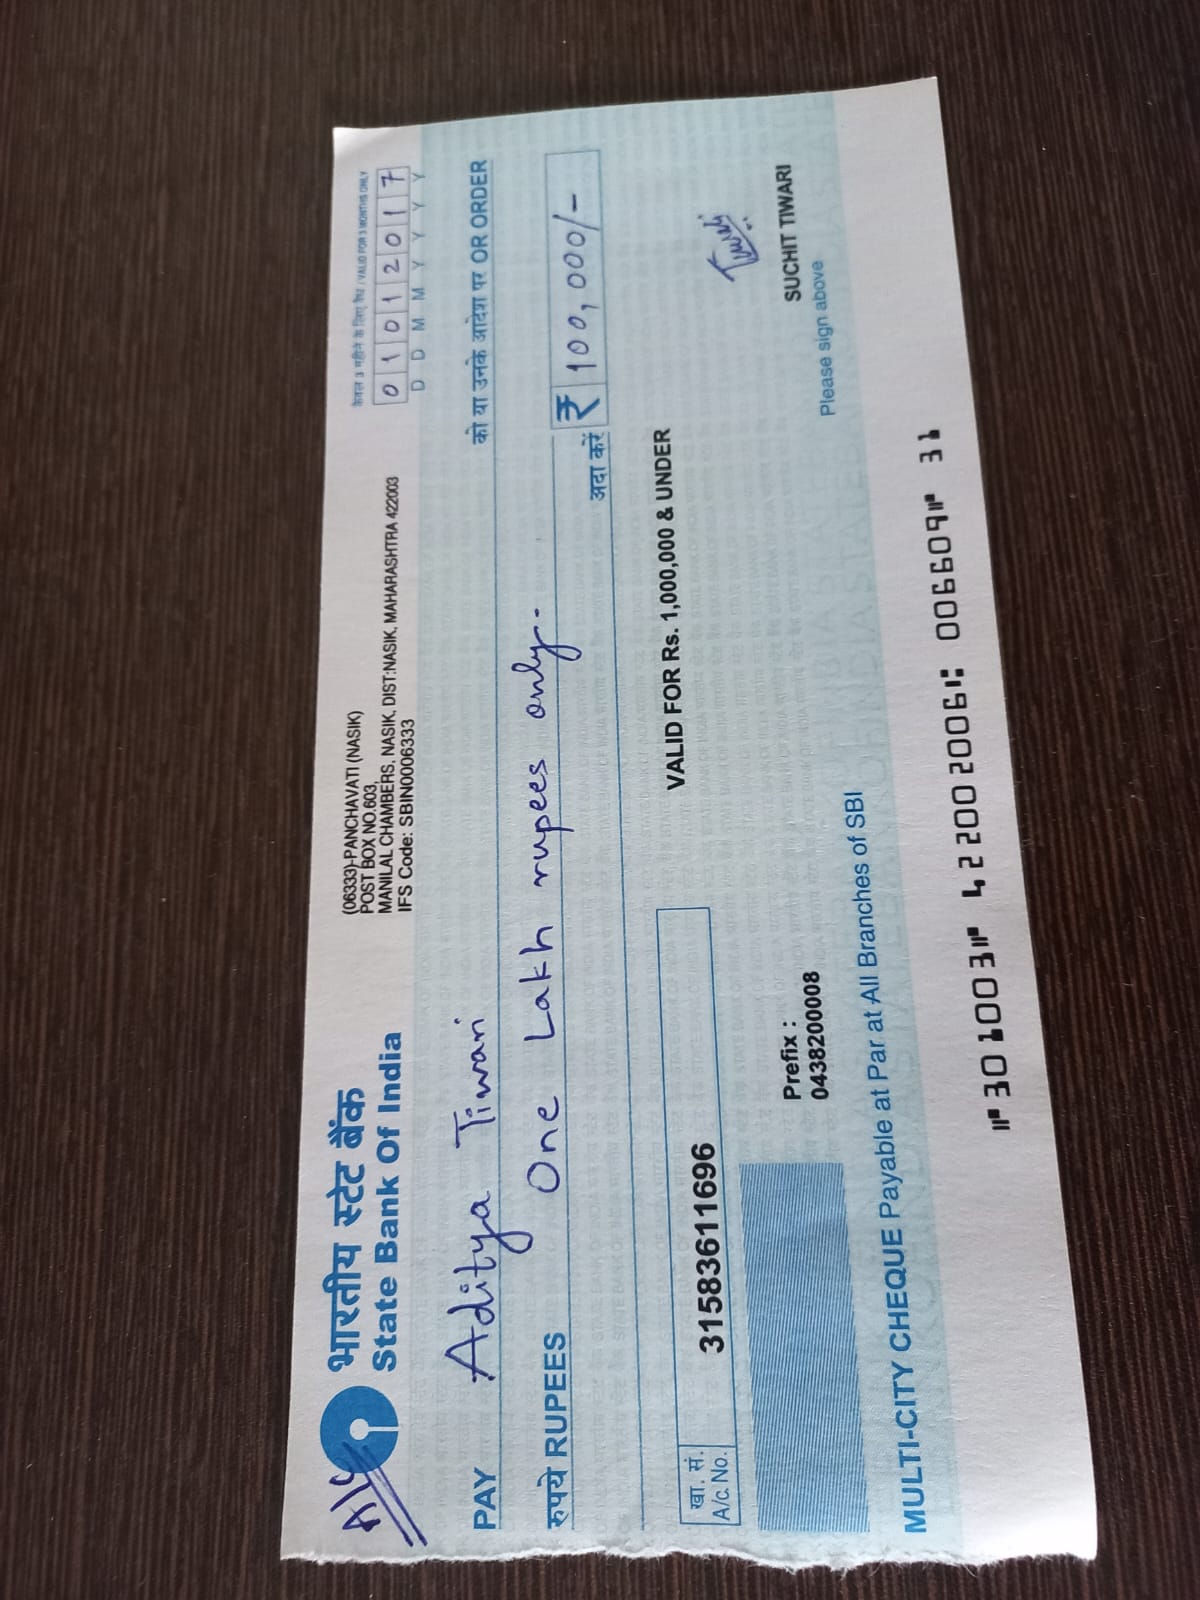 A/C
भारतीय स्टेट बैंक
State Bank Of India
(06333)-PANCHAVATI (NASIK)
POST BOX NO.603,
MANILAL CHAMBERS, NASIK, DIST:NASIK, MAHARASHTRA 422003
IFS Code: SBIN0006333
केवल 3 महीने के लिए वैध / VALID FOR 3 MONTHS ONLY
01012017
D D M M Y Y Y Y
PAY Aditya Tiwari को या उनके आदेश पर OR ORDER
रुपये RUPEES One Lakh rupees only.
अदा करें ₹ 100,000/-
खा. सं.
A/c. No. 31583611696
VALID FOR Rs. 1,000,000 & UNDER
Tiwari
Prefix :
0438200008
SUCHIT TIWARI
Please sign above
MULTI-CITY CHEQUE Payable at Par at All Branches of SBI
⑈301003⑈ 422002006⑆ 006609⑈ 31